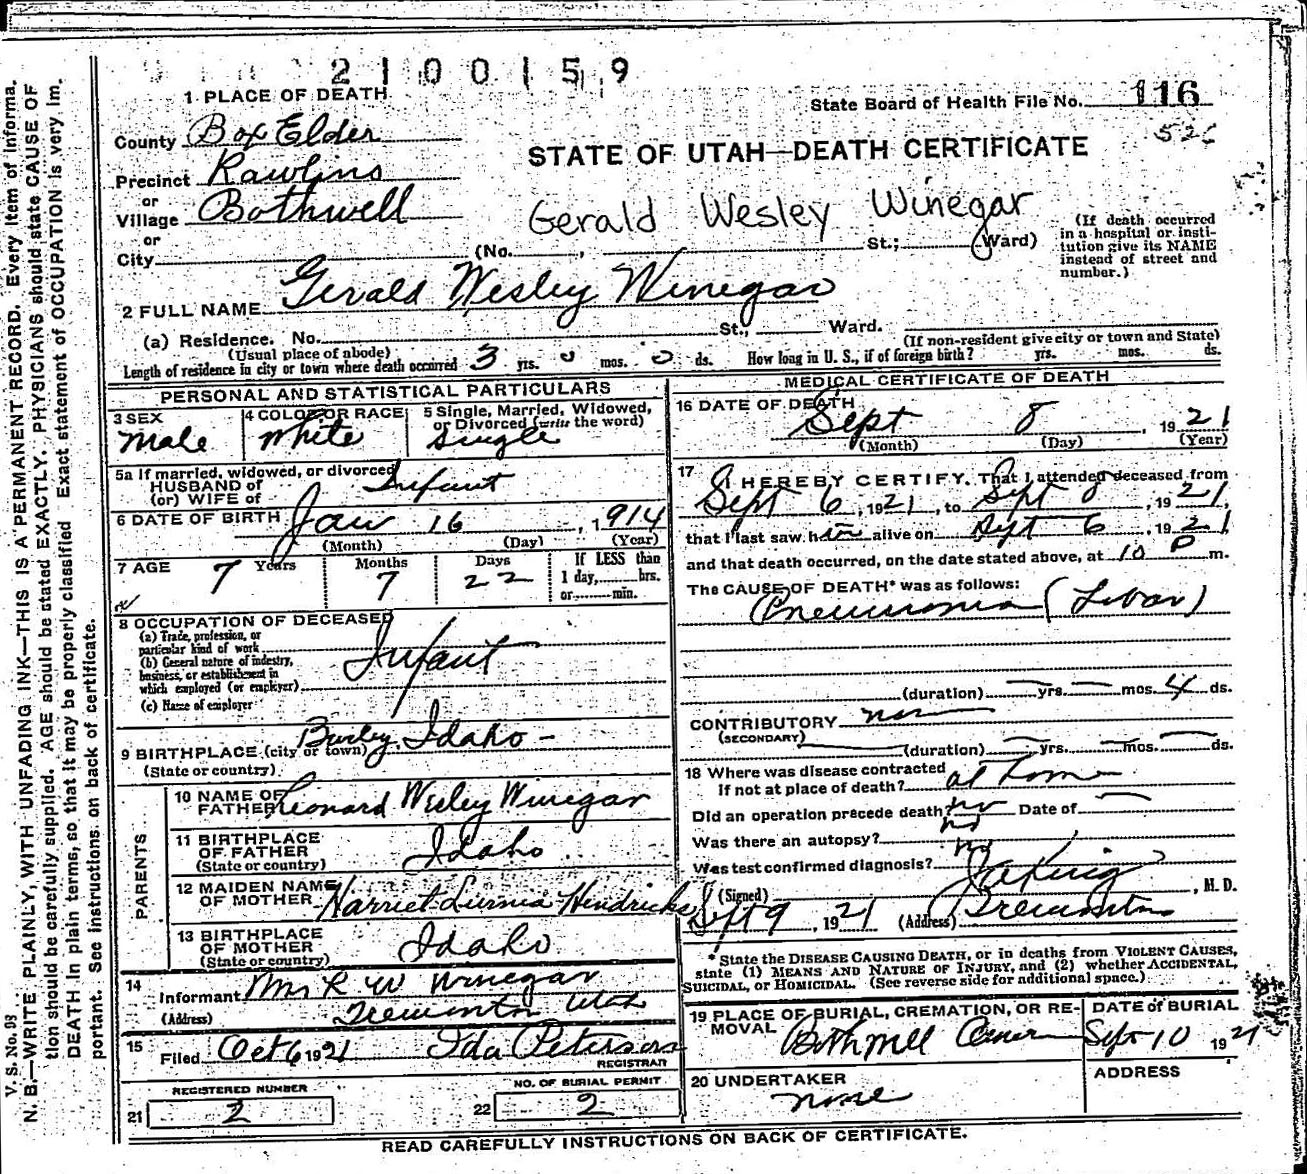 2100159
1 PLACE OF DEATH
State Board of Health File No. 116
526
County Box Elder
STATE OF UTAH—DEATH CERTIFICATE
Precinct Rawlins
or
Village Bothwell
Gerald Wesley Winegar
or
City (No. , St.; Ward)
(If death occurred
in a hospital or insti-
tution give its NAME
instead of street and
number.)
2 FULL NAME Gerald Wesley Winegar
(a) Residence. No. St., Ward.
(Usual place of abode)
(If non-resident give city or town and State)
Length of residence in city or town where death occurred 3 yrs. 0 mos. 0 ds. How long in U. S., if of foreign birth? yrs. mos. ds.
PERSONAL AND STATISTICAL PARTICULARS
3 SEX
Male
4 COLOR OR RACE
White
5 Single, Married, Widowed,
or Divorced (write the word)
Single
5a If married, widowed, or divorced
HUSBAND of
(or) WIFE of
Infant
6 DATE OF BIRTH Jan 16, 1914
(Month) (Day) (Year)
7 AGE 7 Years 7 Months 22 Days
If LESS than
1 day, hrs.
or min.
8 OCCUPATION OF DECEASED
(a) Trade, profession, or
particular kind of work
(b) General nature of industry,
business, or establishment in
which employed (or employer)
(c) Name of employer
Infant
9 BIRTHPLACE (city or town) Burley, Idaho -
(State or country)
PARENTS
10 NAME OF
FATHER Leonard Wesley Winegar
11 BIRTHPLACE
OF FATHER
(State or country) Idaho
12 MAIDEN NAME
OF MOTHER Harriet Hendricks
13 BIRTHPLACE
OF MOTHER
(State or country) Idaho
14
Informant Mrs R W Winegar
(Address) Tremonton Utah
15
Filed Oct 6 1921 Ida Peterson
REGISTRAR
REGISTERED NUMBER
21 2
NO. OF BURIAL PERMIT
22 2
MEDICAL CERTIFICATE OF DEATH
16 DATE OF DEATH
Sept 8, 1921
(Month) (Day) (Year)
17 I HEREBY CERTIFY, That I attended deceased from
Sept 6, 1921, to Sept 8, 1921,
that I last saw him alive on Sept 6, 1921
and that death occurred, on the date stated above, at 10 P m.
The CAUSE OF DEATH* was as follows:
Pneumonia (Lobar)
(duration) — yrs. — mos. 4 ds.
CONTRIBUTORY
(SECONDARY)
(duration) — yrs. — mos. — ds.
18 Where was disease contracted
if not at place of death? at home
Did an operation precede death? no Date of —
Was there an autopsy? no
Was test confirmed diagnosis? no
(Signed) King, M. D.
Sept 9, 1921 (Address) Tremonton
*State the DISEASE CAUSING DEATH, or in deaths from VIOLENT CAUSES,
state (1) MEANS AND NATURE OF INJURY, and (2) whether ACCIDENTAL,
SUICIDAL, or HOMICIDAL. (See reverse side for additional space.)
19 PLACE OF BURIAL, CREMATION, OR RE-
MOVAL Bothwell
DATE of BURIAL
Sept 10 1921
20 UNDERTAKER
none
ADDRESS
READ CAREFULLY INSTRUCTIONS ON BACK OF CERTIFICATE.
V. S. No. 98
N. B.—WRITE PLAINLY, WITH UNFADING INK—THIS IS A PERMANENT RECORD. Every item of informa-
tion should be carefully supplied. AGE should be stated EXACTLY. PHYSICIANS should state CAUSE OF
DEATH in plain terms, so that it may be properly classified. Exact statement of OCCUPATION is very im-
portant. See instructions on back of certificate.